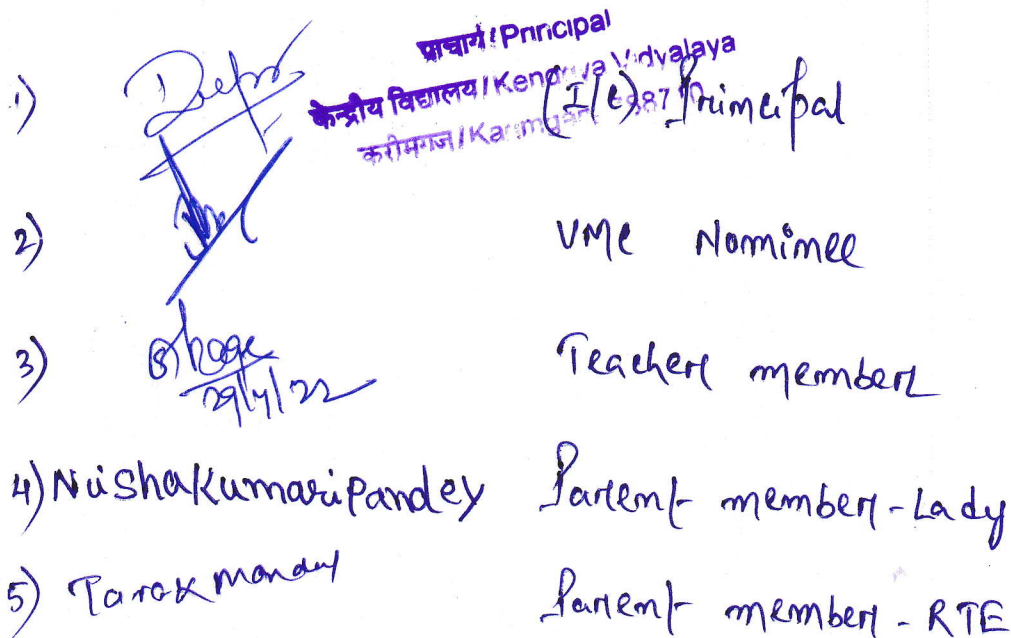 प्राचार्य / Principal
केन्द्रीय विद्यालय / Kendriya Vidyalaya
करीमगंज / Karimganj
1) (I/C) Principal
2) VMC Nominee
3) 29/4/22 Teacher member
4) Nisha Kumari Pandey Parent member - Lady
5) Tarak Mondal Parent member - RTE